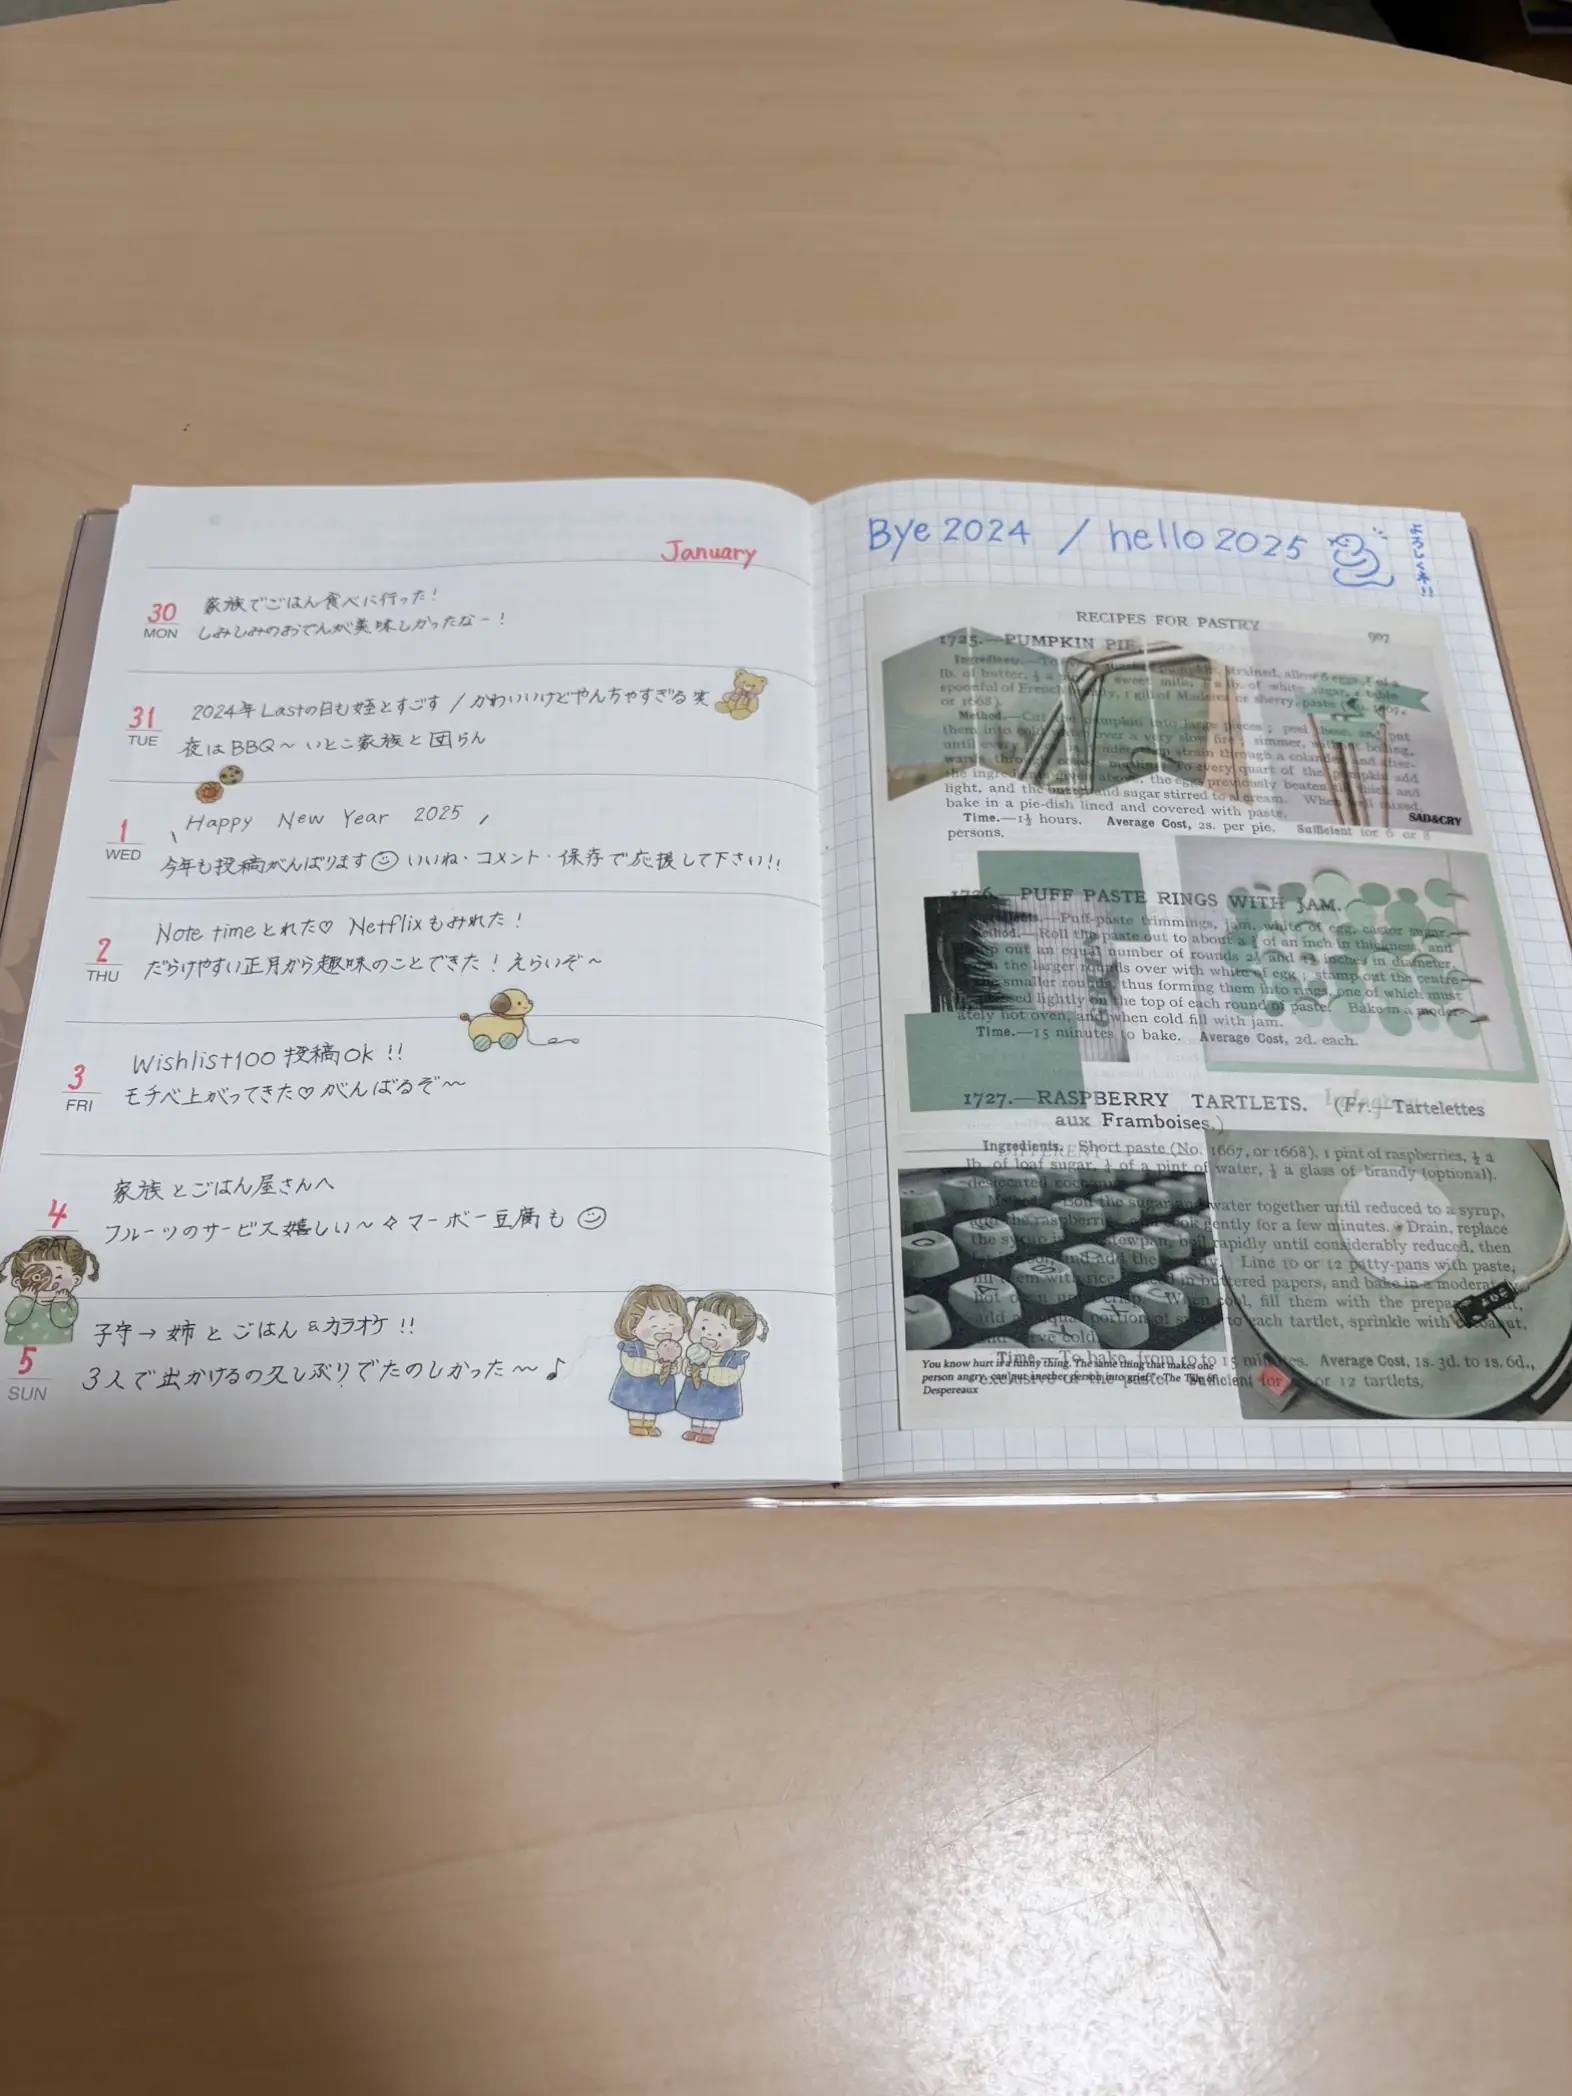 January
30
MON
家族でごはん食べに行った!
しみしみのおでんが美味しかったなー!
31
TUE
2024年Lastの日も姪とすごす / かわいいけどやんちゃすぎる笑
夜はBBQ〜いとこ家族と団らん
1
WED
\ Happy New Year 2025 /
今年も投稿がんばります☺いいね・コメント・保存で応援して下さい!!
2
THU
Note timeとれた♡ Netflixもみれた!
だらけやすい正月から趣味のことできた!えらいぞ〜
3
FRI
Wishlist100投稿ok!!
モチベ上がってきた♡がんばるぞ〜
4
家族とごはん屋さんへ
フルーツのサービス嬉しい〜 マーボー豆腐も☺
5
SUN
子守→姉とごはん&カラオケ!!
3人で出かけるの久しぶりでたのしかった〜♪
Bye 2024 / hello 2025
よろしくネ!!
RECIPES FOR PASTRY 907
1725.—PUMPKIN PIE.
Ingredients.—To strained, allow 6 eggs, ¼ of a
lb. of butter, sweet milk, lb. of white sugar, table
spoonful of French 1 gill of Madeira or sherry, paste
or 1668).
Method.—Cut the pumpkin into large pieces; peel and put
them into cold water over a very slow fire simmer, boiling,
until strain through a colander and after-
To every quart of the pumpkin add
the ingredients given above, the eggs previously beaten thick and
light, and the butter and sugar stirred to a cream. When mixed,
bake in a pie-dish lined and covered with paste.
Time.—1½ hours. Average Cost, 2s. per pie. Sufficient for 6 or 8
persons.
SAD&CRY
1726.—PUFF PASTE RINGS WITH JAM.
Ingredients.—Puff-paste trimmings, jam, white of egg, castor sugar.
Method.—Roll the paste out to about a ¼ of an inch in thickness, and
out an equal number of rounds 2½ and 1½ inches in diameter.
the larger rounds over with white of egg; stamp out the centre
smaller rounds, thus forming them into rings, one of which must
lightly on the top of each round of paste. Bake in a moder-
ately hot oven, and when cold fill with jam.
Time.—15 minutes to bake. Average Cost, 2d. each.
1727.—RASPBERRY TARTLETS. (Fr.—Tartelettes
aux Framboises.)
Ingredients. Short paste (No. 1667, or 1668), 1 pint of raspberries, ½ a
lb. of loaf sugar, ¼ of a pint of water, ½ a glass of brandy (optional).
desiccated
the sugar and water together until reduced to a syrup,
and the raspberries cook gently for a few minutes. Drain, replace
the syrup in stewpan, boil rapidly until considerably reduced, then
and add the Line 10 or 12 patty-pans with paste,
fill them with rice in buttered papers, and bake in a moderate
hot oven until crisp. When cool, fill them with the
add equal portion of to each tartlet, sprinkle with
serve cold.
Time.—To bake, from 10 to 15 minutes. Average Cost, 1s. 3d. to 1s. 6d.,
exclusive of the paste. Sufficient for or 12 tartlets.
You know hurt is a funny thing. The same thing that makes one
person angry, can put another person into grief. - The Tale of
Despereaux